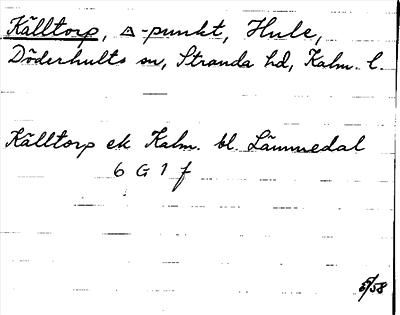 Källtorp, △-punkt, Hule,
Döderhults sn, Stranda hd, Kalm. l.
Källtorp ek Kalm. bl. Lämmedal
6 G 1 f
5/58